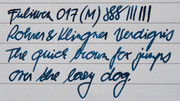 Fuliwen 017 (M) 
Rohrer & Klingner Verdigris
The quick brown fox jumps
over the lazy dog.